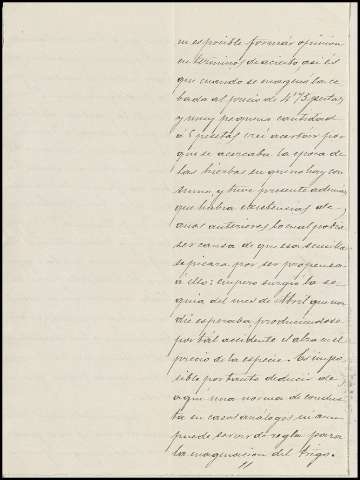 es posible formar opinion
en terminos de acierto, asi es
que cuando se enageno la ce
bada al precio de 4'75 pesetas
y muy pequeña cantidad
á 5 pesetas crei acertar por
que se acercaba la epoca de
las hierbas en que no hay con
sumo, y tuve presente ademas
que habia existencias de
anos anteriores lo cual podia
ser causa de que esa semilla
se picara por ser propensa
á ello: empero surgio la se
quia del mes de Abril que na
die esperaba produciendose
por tal accidente el alza en el
precio de la especie. Es impo
sible por tanto deducir de
aqui una norma de conduc
ta en casos analogos ni aun
puede servir de regla para
la enagenacion del trigo.